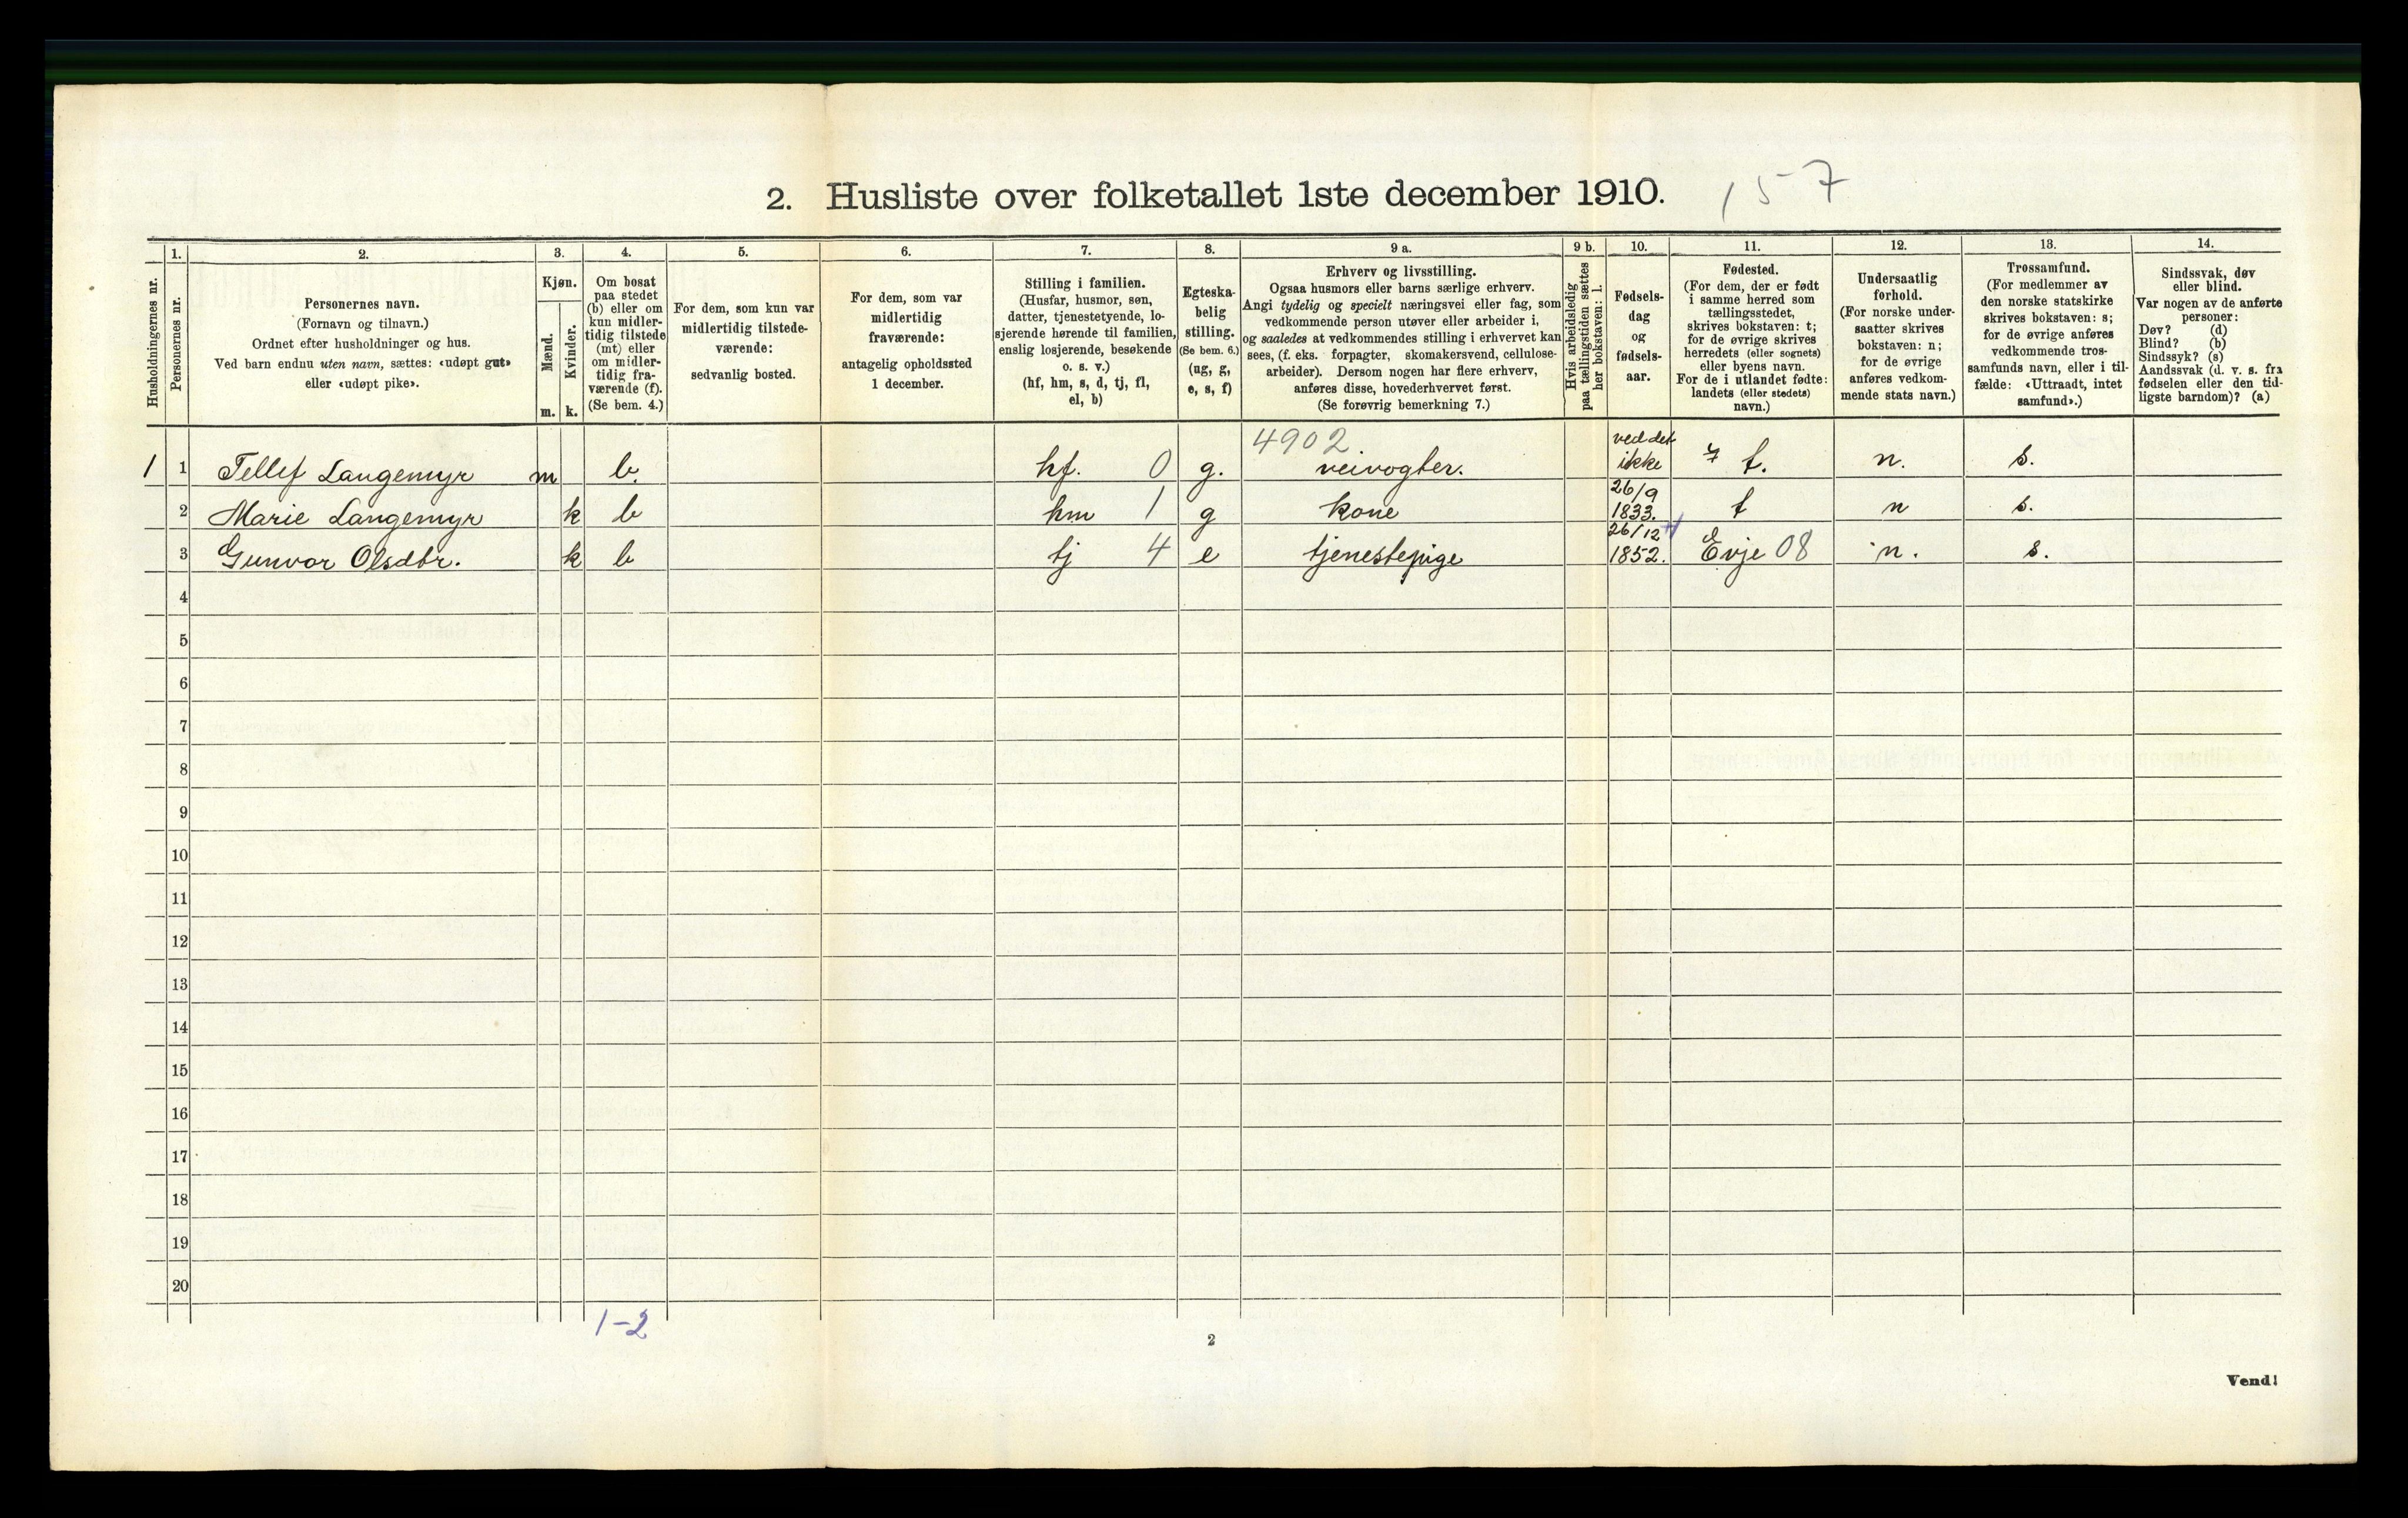 2. Husliste over folketallet 1ste december 1910. 157
Husholdningernes nr.
1.
Personernes nr.
2.
Personernes navn.
(Fornavn og tilnavn.)
Ordnet efter husholdninger og hus.
Ved barn endnu uten navn, sættes: «udøpt gut»
eller «udøpt pike».
3.
Kjøn.
Mænd.
m.
Kvinder.
k.
4.
Om bosat
paa stedet
(b) eller om
kun midler-
tidig tilstede
(mt) eller
om midler-
tidig fra-
værende (f).
(Se bem. 4.)
5.
For dem, som kun var
midlertidig tilstede-
værende:
sedvanlig bosted.
6.
For dem, som var
midlertidig
fraværende:
antagelig opholdssted
1 december.
7.
Stilling i familien.
(Husfar, husmor, søn,
datter, tjenestetyende, lo-
sjerende hørende til familien,
enslig losjerende, besøkende
o. s. v.)
(hf, hm, s, d, tj, fl,
el, b)
8.
Egteska-
belig
stilling.
(Se bem. 6.)
(ug, g,
e, s, f)
9 a.
Erhverv og livsstilling.
Ogsaa husmors eller barns særlige erhverv.
Angi tydelig og specielt næringsvei eller fag, som
vedkommende person utøver eller arbeider i,
og saaledes at vedkommendes stilling i erhvervet kan
sees, (f. eks. forpagter, skomakersvend, cellulose-
arbeider). Dersom nogen har flere erhverv,
anføres disse, hovederhvervet først.
(Se forøvrig bemerkning 7.)
9 b.
Hvis arbeidsledig
paa tællingstiden sættes
her bokstaven: l.
10.
Fødsels-
dag
og
fødsels-
aar.
11.
Fødested.
(For dem, der er født
i samme herred som
tællingsstedet,
skrives bokstaven: t;
for de øvrige skrives
herredets (eller sognets)
eller byens navn.
For de i utlandet fødte:
landets (eller stedets)
navn.)
12.
Undersaatlig
forhold.
(For norske under-
saatter skrives
bokstaven: n;
for de øvrige
anføres vedkom-
mende stats navn.)
13.
Trossamfund.
(For medlemmer av
den norske statskirke
skrives bokstaven: s;
for de øvrige anføres
vedkommende tros-
samfunds navn, eller i til-
fælde: «Uttraadt, intet
samfund».)
14.
Sindssvak, døv
eller blind.
Var nogen av de anførte
personer:
Døv? (d)
Blind? (b)
Sindssyk? (s)
Aandssvak (d. v. s. fra
fødselen eller den tid-
ligste barndom)? (a)
4902
1 1 Tellef Langemyr m b. hf. 0 g. veivogter. ved det ikke t. n. s.
2 Marie Langemyr k b hm 1 g kone 26/9 1833. t n s.
3 Gunvor Olsdtr. k b tj 4 e tjenestepige 26/12 1852. Evje 08 n. s.
4
5
6
7
8
9
10
11
12
13
14
15
16
17
18
19
20
1-2
2
Vend!